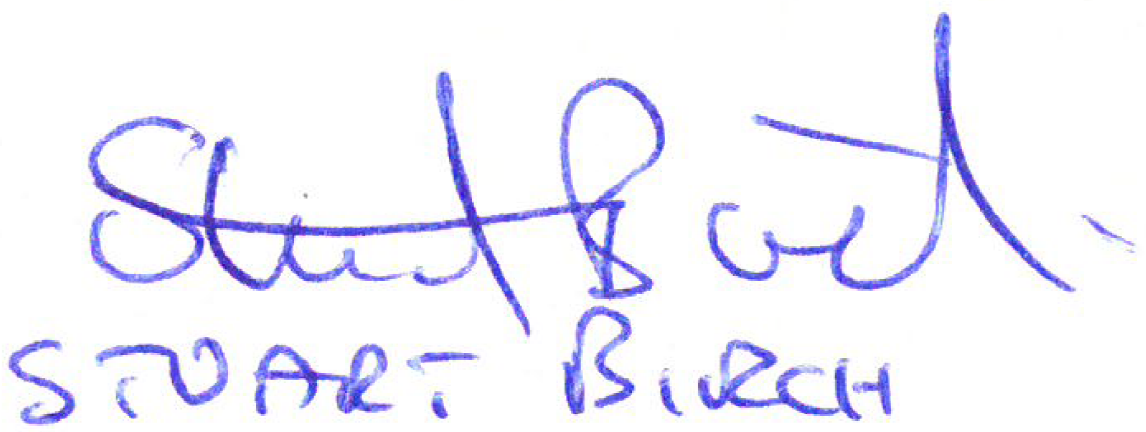 Stuart Birch
STUART BIRCH